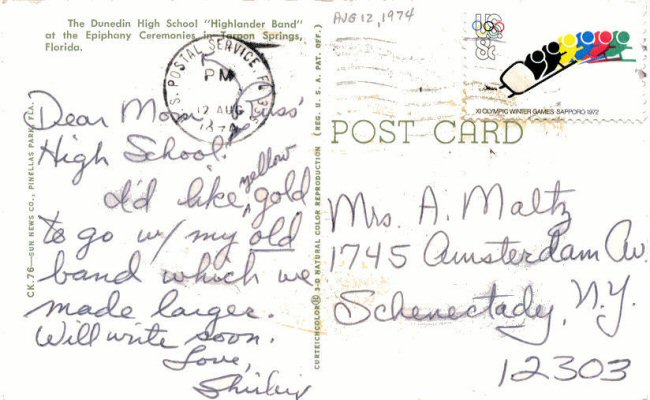 The Dunedin High School "Highlander Band"
at the Epiphany Ceremonies in Tarpon Springs,
Florida.
AUG 12, 1974
U.S. POSTAL SERVICE FL
PM
12 AUG
1974
8c
XI OLYMPIC WINTER GAMES SAPPORO 1972
POST CARD
Dear Mom, Russ'
High School!
I'd like yellow gold
to go w/ my old
band which we
made larger.
Will write soon.
Love,
Shirley
Mrs. A. Maltz
1745 Amsterdam Av.
Schenectady, N.Y.
12303
CK.76—SUN NEWS CO., PINELLAS PARK, FLA.
CURTEICHCOLOR® 3-D NATURAL COLOR REPRODUCTION (REG. U. S. A. PAT. OFF.)